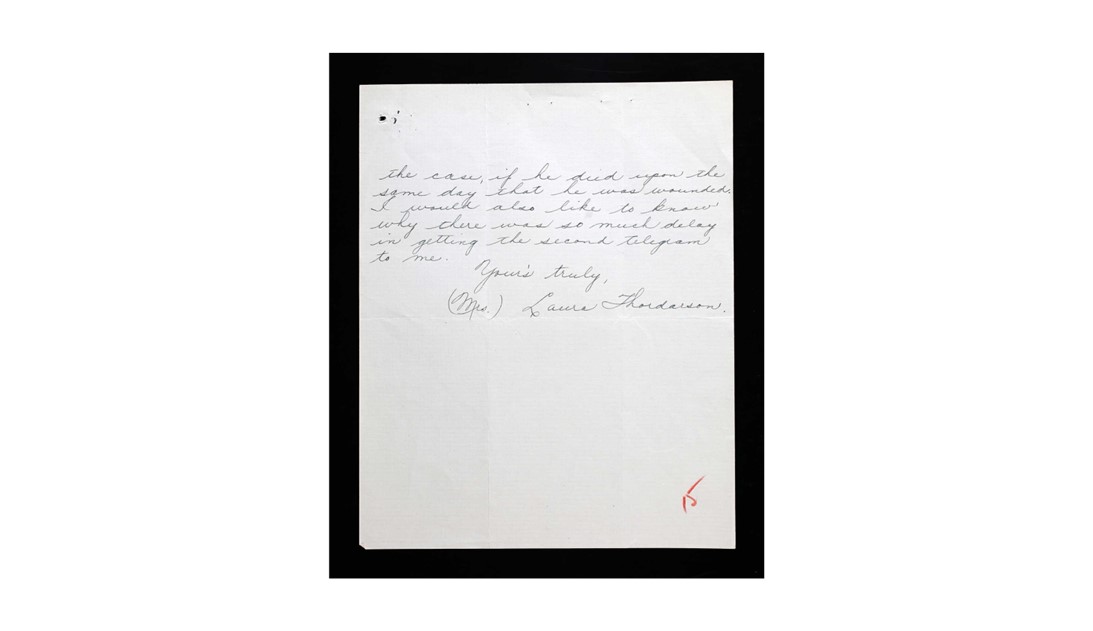 the case, if he died upon the
same day that he was wounded.
I would also like to know
why there was so much delay
in getting the second telegram
to me.
Your's truly,
(Mrs.) Laura Thordarson.
15